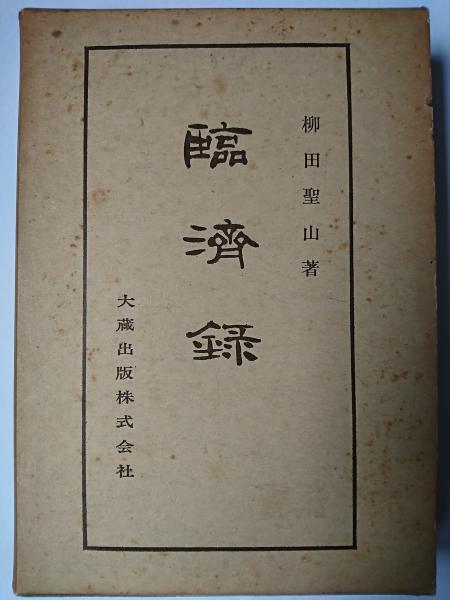 柳田聖山著
臨済録
大蔵出版株式会社